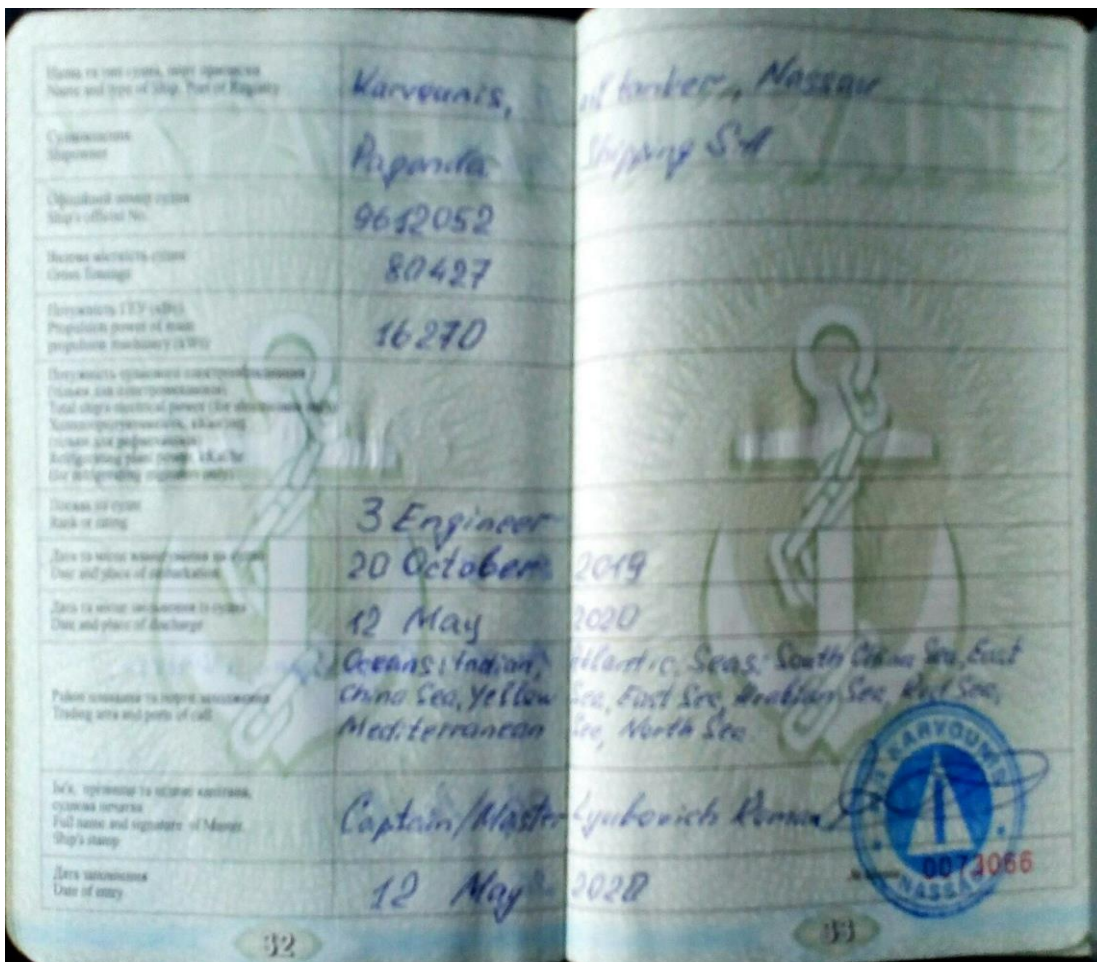 Назва та тип судна, порт приписки
Name and type of Ship. Port of Registry
Karvounis, oil tanker, Nassau
Судновласник
Shipowner
Paganda Shipping S.A
Офіційний номер судна
Ship's official No.
9612052
Валова місткість судна
Gross Tonnage
80427
Потужність ГЕУ (кВт)
Propulsion power of main
propulsion machinery (kW)
16270
(тільки для електромеханіків)
Total ship's electrical power (for
(тільки для рефмеханіків)
Refrigerating plant power,
(for refrigerating engineers only)
Посада на судні
Rank or rating
3 Engineer
Дата та місце влаштування на судно
Date and place of embarkation
20 October 2019
Дата та місце звільнення із судна
Date and place of discharge
12 May 2020
Район плавання та порти заходження
Trading area and ports of call
Oceans: Indian, Atlantic, Seas: South China Sea, East
China Sea, Yellow Sea, East Sea, Arabian Sea, Red Sea,
Mediterranean Sea, North Sea
Ім'я, прізвище та підпис капітана,
суднова печатка
Full name and signature of Master.
Ship's stamp
Captain/Master Lyubovich Roman
KARVOUNIS
NASSAU
0073066
Дата заповнення
Date of entry
12 May 2020
32
33